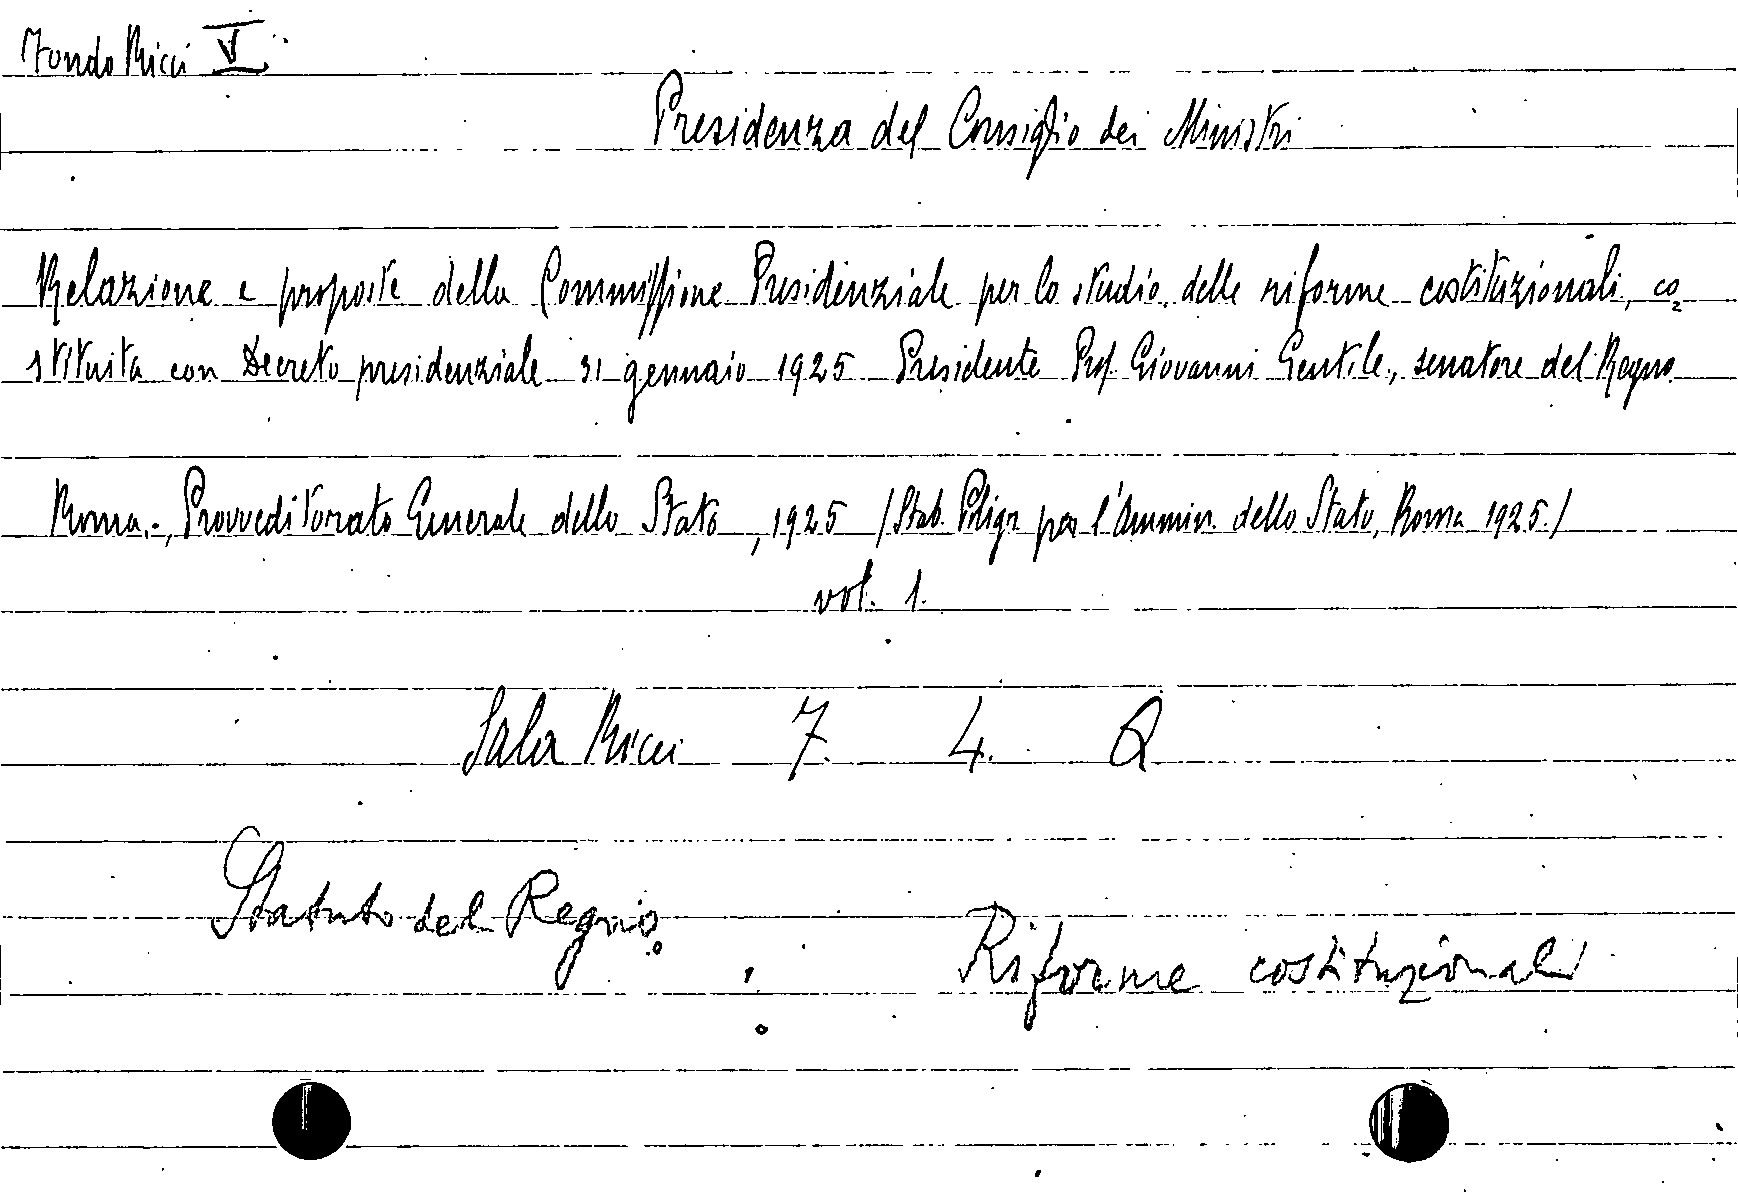 Fondo Ricci V
Presidenza del Consiglio dei Ministri
Relazione e proposte della Commissione Presidenziale per lo studio delle riforme costituzionali, co=
stituita con Decreto presidenziale 31 gennaio 1925 Presidente Prof. Giovanni Gentile, senatore del Regno
Roma, Provveditorato Generale dello Stato, 1925 /Stab. Poligr per l'Ammin. dello Stato, Roma 1925./
vol. 1.
Sala Ricci 7. 4. Q
Statuto del Regno.
Riforme costituzionali